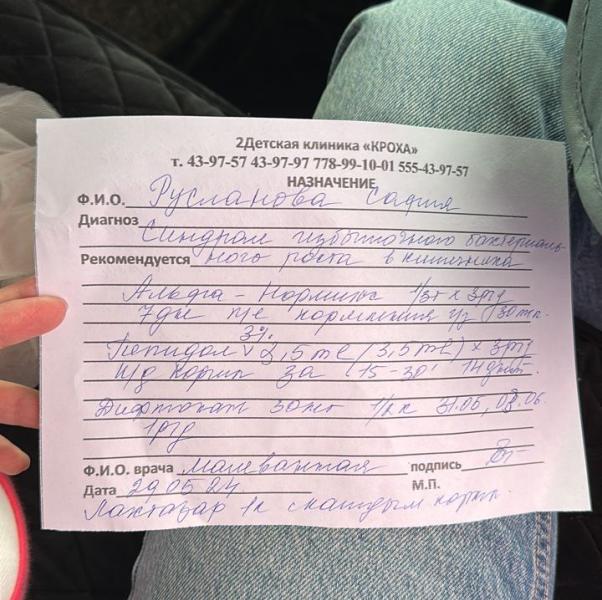 2Детская клиника «КРОХА»
т. 43-97-57 43-97-97 778-99-10-01 555-43-97-57
НАЗНАЧЕНИЕ
Ф.И.О. Русланова Сафия
Диагноз
Синдром избыточного бактериаль
Рекомендуется ного роста в кишечнике
Альфа-Нормикс
7дн кормления 30
3%
Пепидол 2,5 ml (3,5 ml) x 3р/д
за 15-30' 14 дней.
30 31.05, 08.06.
1р/д
Ф.И.О. врача подпись
Дата 29 05 24 М.П.
Лактазар 1к с каждым корм.